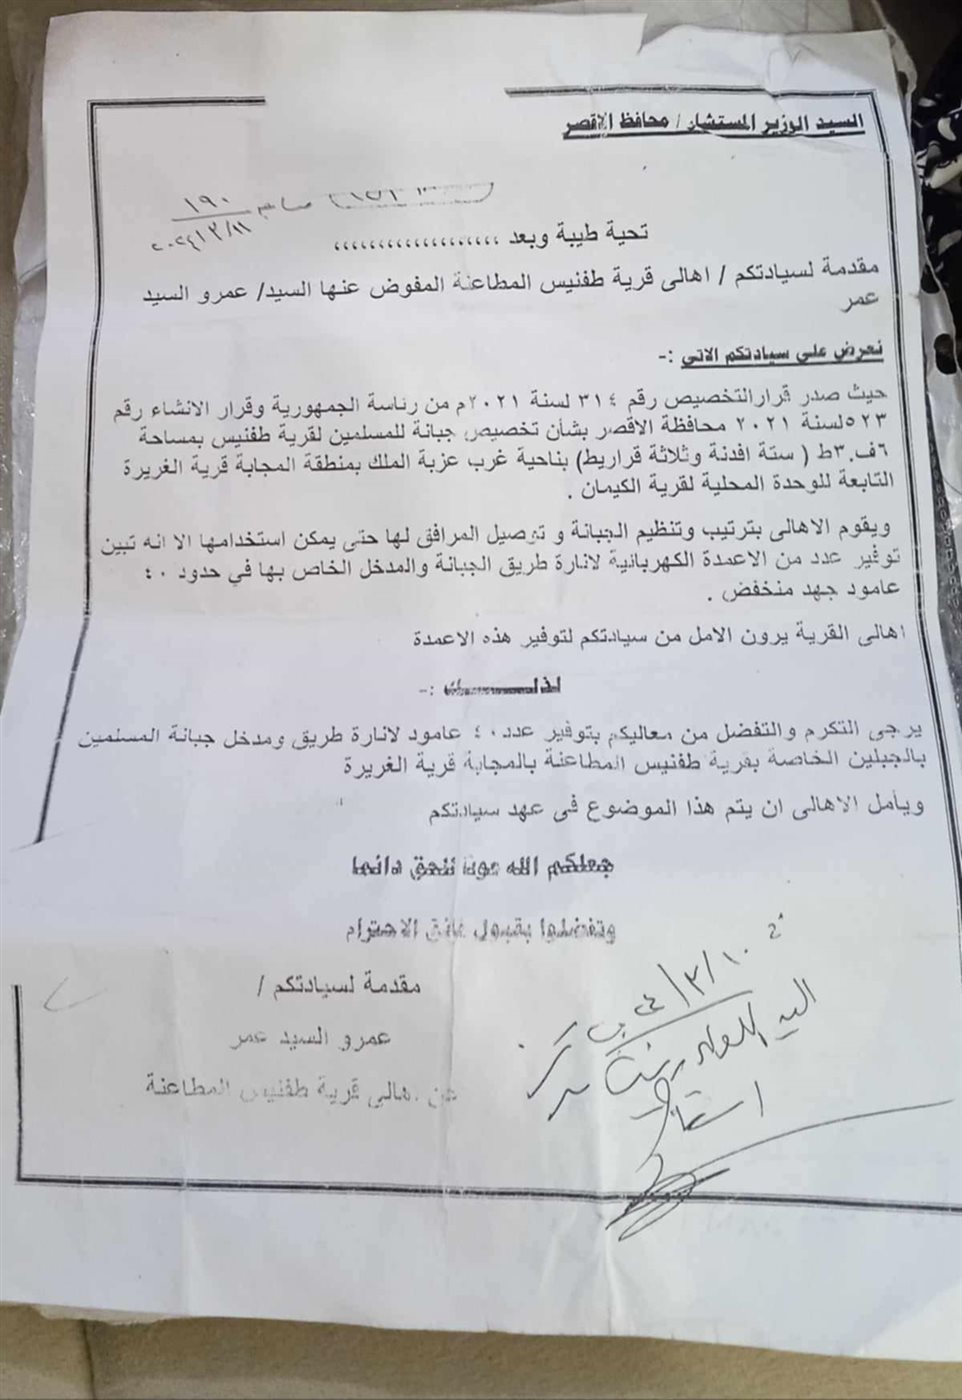 السيد الوزير المستشار / محافظ الاقصر
١٩٠
٢٠٢٤/٣/١١
تحية طيبة وبعد ،،،،،،،،،،،،،،،،،،،
مقدمة لسيادتكم / اهالى قرية طفنيس المطاعنة المفوض عنها السيد/ عمرو السيد
عمر
نعرض على سيادتكم الاتى :-
حيث صدر قرارالتخصيص رقم ٣١٤ لسنة ٢٠٢١م من رئاسة الجمهورية وقرار الانشاء رقم
٥٢٣لسنة ٢٠٢١ محافظة الاقصر بشأن تخصيص جبانة للمسلمين لقرية طفنيس بمساحة
٦ف.٣ط ( ستة افدنة وثلاثة قراريط) بناحية غرب عزبة الملك بمنطقة المجابة قرية الغريرة
التابعة للوحدة المحلية لقرية الكيمان .
ويقوم الاهالى بترتيب وتنظيم الجبانة و توصيل المرافق لها حتى يمكن استخدامها الا انه تبين
توفير عدد من الاعمدة الكهربائية لانارة طريق الجبانة والمدخل الخاص بها في حدود ٤٠
عامود جهد منخفض .
اهالى القرية يرون الامل من سيادتكم لتوفير هذه الاعمدة
لذلـــــــــك :-
يرجى التكرم والتفضل من معاليكم بتوفير عدد٤٠ عامود لانارة طريق ومدخل جبانة المسلمين
بالجبلين الخاصة بقرية طفنيس المطاعنة بالمجابة قرية الغريرة
ويأمل الاهالى ان يتم هذا الموضوع فى عهد سيادتكم
جعلكم الله عونا للحق دائما
وتفضلوا بقبول فائق الاحترام
مقدمة لسيادتكم /
عمرو السيد عمر
عن اهالى قرية طفنيس المطاعنة